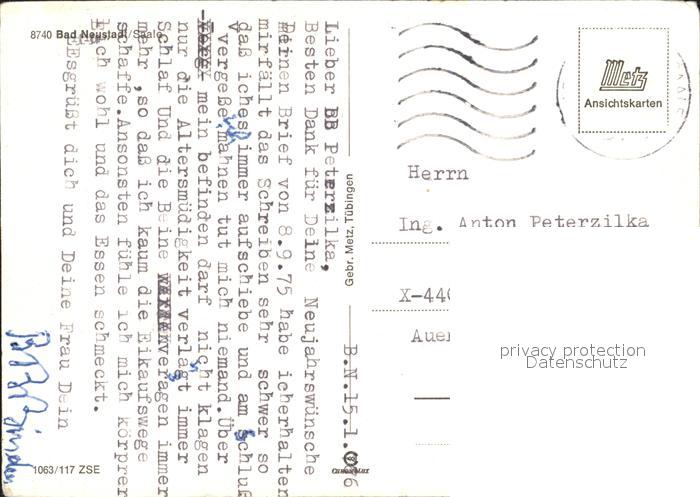 8740 Bad Neustadt/Saale
B.N.15.1.76
Lieber BB Peterzilka,
Besten Dank für Deine Neujahrswünsche
Deinen Brief von 8.9.75 habe icherhalten
mirfällt das Schreiben sehr schwer so
daß iches immer aufschiebe und am Schluß
vergeße ich mahnen tut mich niemand.Über
mein befinden darf nicht klagen
nur die Altersmüdigkeit verlangt immer
Schlaf Und die Beine veragen immer
mehr ,so daß ich kaum die Eikaufswege
schaffe.Ansonsten fühle ich mich körprer
lich wohl und das Essen schmeckt.
Esgrüßt dich und Deine Frau Dein
1063/117 ZSE
Gebr. Metz, Tübingen
Metz
Ansichtskarten
Herrn
Ing. Anton Peterzilka
X-440
Auer
privacy protection
Datenschutz